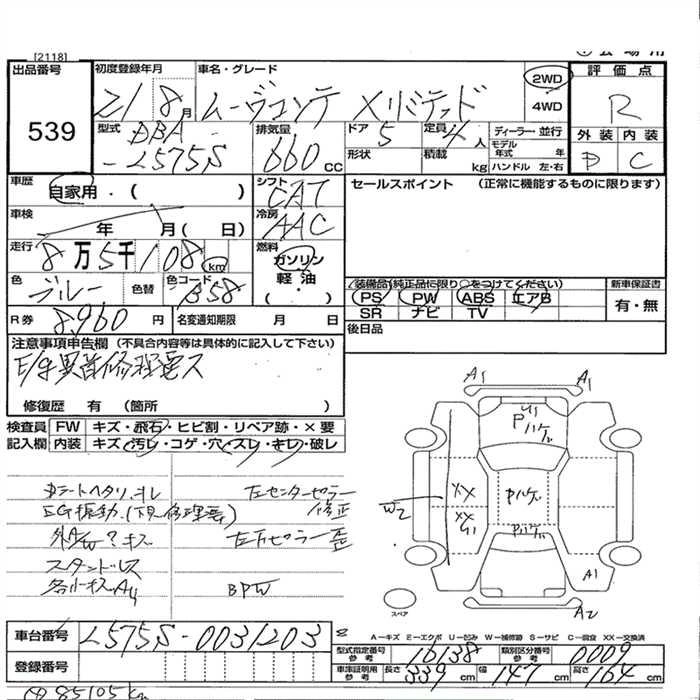 [2118]
出品番号
539
初度登録年月
21 8月
車名・グレード
ムーヴコンテ Xリミテッド
2WD
4WD
評価点
R
外装 内装
D C
型式
DBA-
-L575S
排気量
660 cc
ドア 5
形状
定員 4人
積載 kg
ディーラー・並行
モデル年式 年
ハンドル 左・右
車歴
自家用・( )
シフト
CAT
セールスポイント (正常に機能するものに限ります)
車検
年 月( 日)
冷房
AAC
走行
8万5千108 km
燃料
ガソリン
軽油
( ・ )
色
ブルー
色替
色コード
B58
装備品(純正品に限り○をつけてください)
PS PW ABS エアB
SR ナビ TV
新車保証書
有・無
R券 8,960円
名変通知期限 月 日
後日品
注意事項申告欄 (不具合内容等は具体的に記入して下さい)
E/g異音修理要ス
修復歴 有 (箇所 )
検査員
記入欄
FW キズ・飛石・ヒビ割・リペア跡・×要
内装 キズ・汚レ・コゲ・穴・スレ・キレ・破レ
A1 A1
U1
Pハゲ
Pハゲ
Pハゲ
W2
XX
XX
U1
A1
A2
スペア
シートヘタリ・スレ
EG振動・(下見・修理要)
外AW?キズ
スタンドレス
各小キズA4
左センターピラー
修正
左Fピラー歪
BPW
車台番号
L575S-0031203
8
A―キズ E―エクボ U―凹み W―補修跡 S―サビ C―腐食 XX―交換済
登録番号
型式指定番号
参考
16138
類別区分番号
参考
0009
車庫証明用
参考
長さ 339cm 幅 147cm 高さ 164cm
85105km